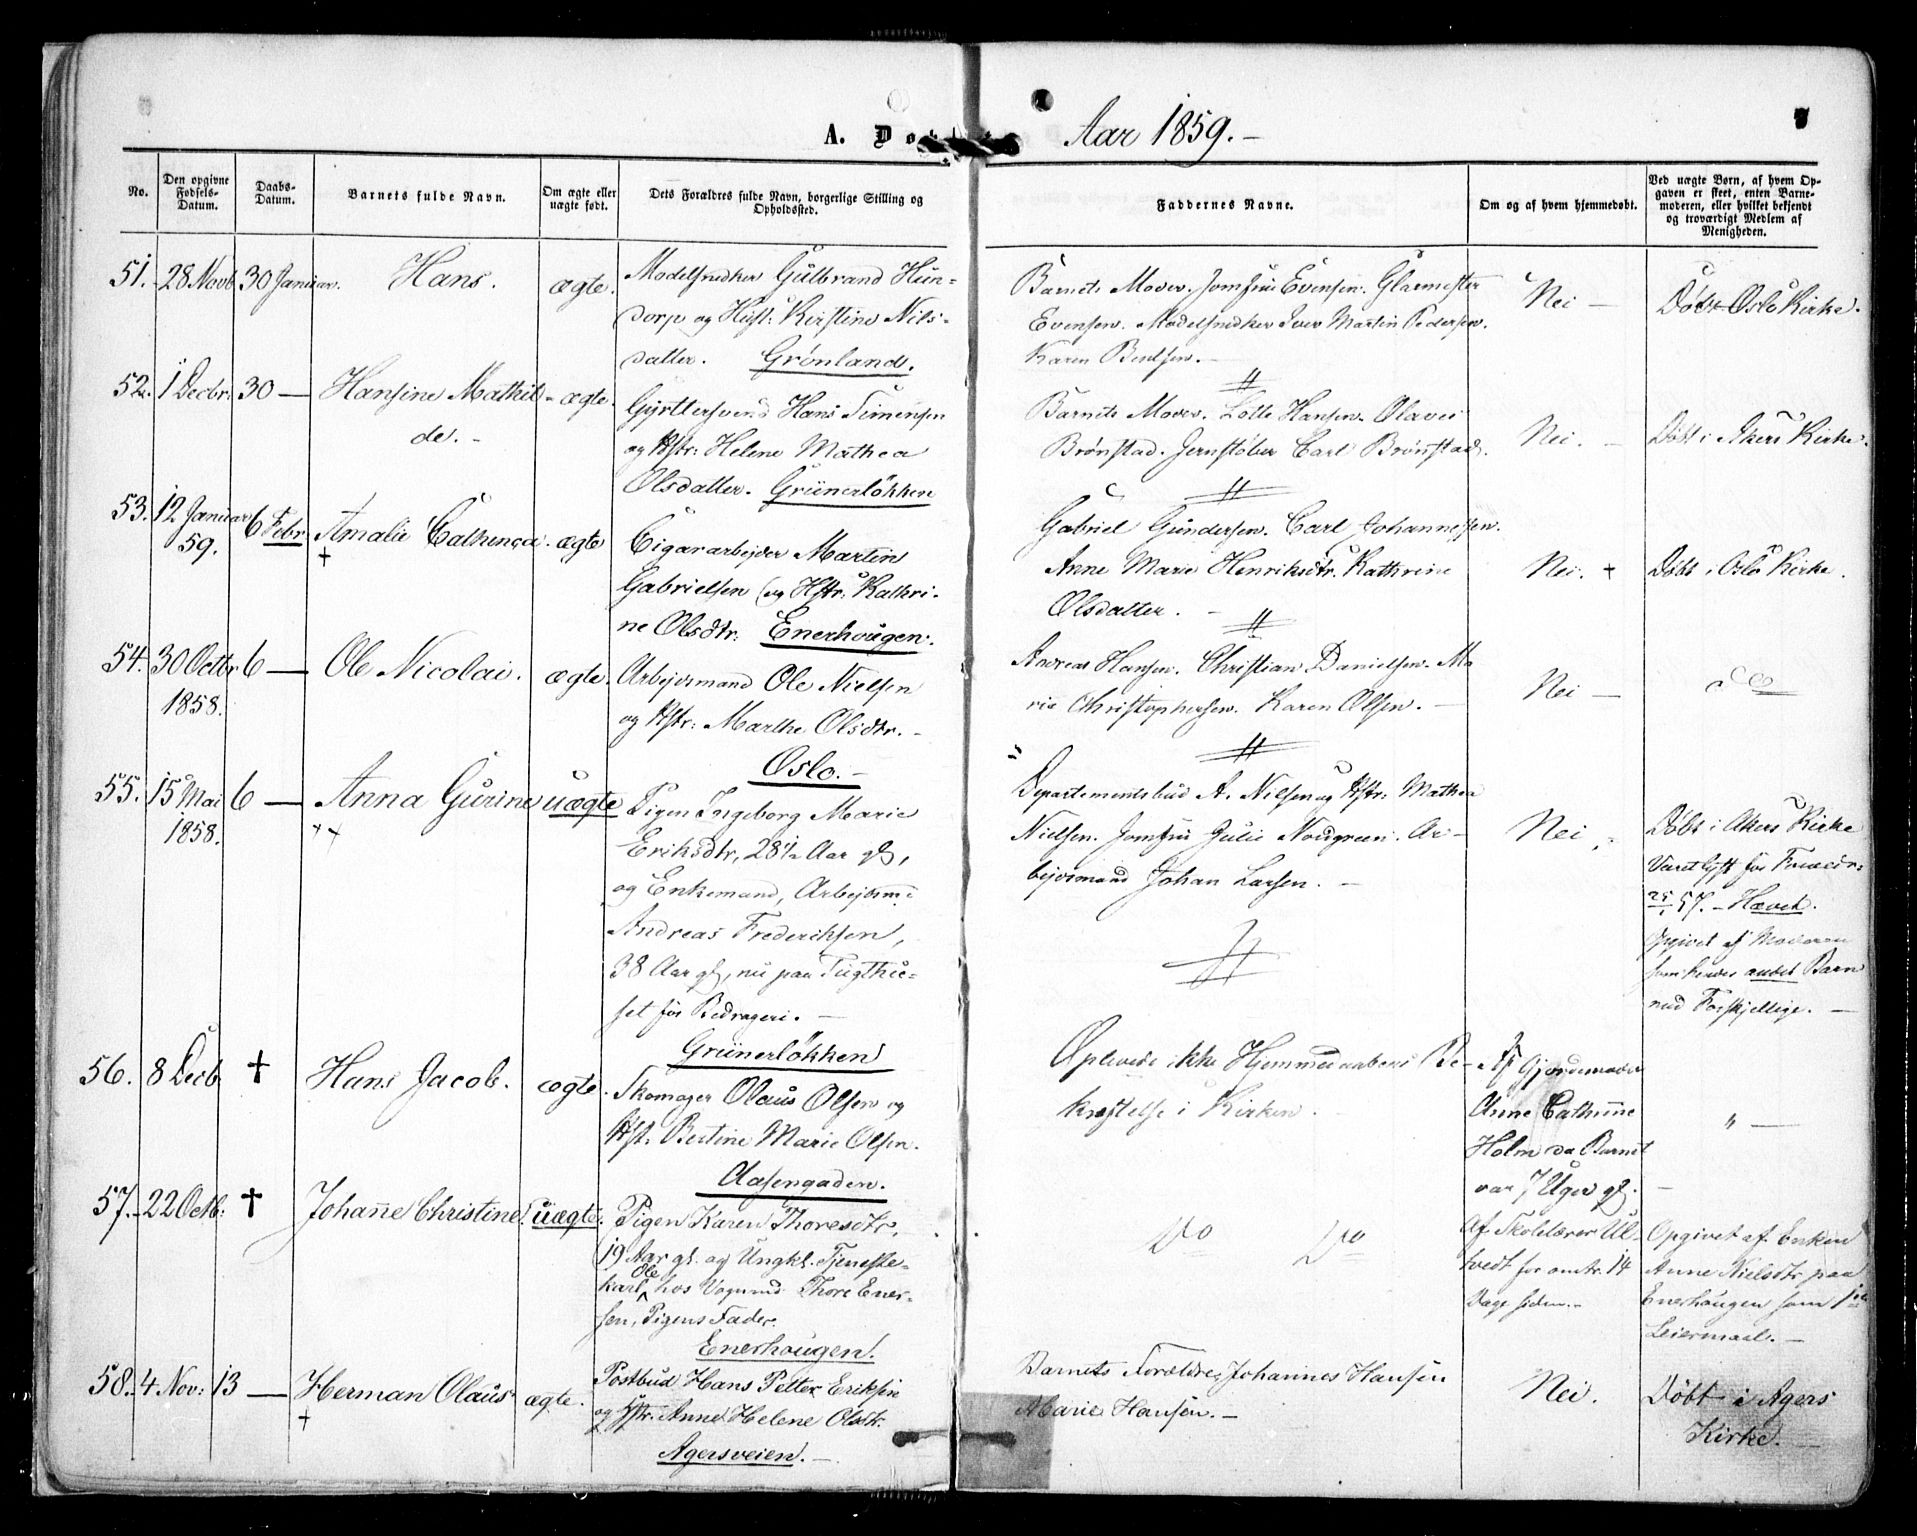 A. Dø
Aar 1859.-
7
No.
Den opgivne Fødsels-Datum.
Daabs-Datum.
Barnets fulde Navn.
Om ægte eller uægte født.
Dets Forældres fulde Navn, borgerlige Stilling og Opholdssted.
Faddernes Navne.
Om og af hvem hjemmedøbt.
Ved uægte Børn, af hvem Opgaven er skeet, enten Barnemoderen, eller hvilket bekjendt og troværdigt Medlem af Menigheden.
51. 28 Novb 30 Januar. Hans. ægte.
Modelsnedker Gulbrand Hun-
dorp og Hust: Kirstine Nils-
datter. Grønland.
Barnets Moder. Jomfru Evensen. Glarmester
Evensen. Modelsnedker Iver Martin Pedersen.
Karen Bentsen. -
Nei -
Døbt Oslo Kirke.
52. 1 Decbr. 30 — Hansine Mathil- ægte.
de. -
Gjørtlersvend Hans Simensen
og Hstr: Helene Mathea
Olsdatter. Grünerløkken
Barnets Moder. Lotte Hansen. Olave
Brønstad. Jernstøber Carl Brønstad.
Nei. -
Døbt i Akers Kirke.
53. 12 Januar 6 Febr. Amalie Cathrinca. ægte
59. +
Cigararbejder Martin
Gabrielsen og Hstr: Kathri-
ne Olsdtr: Enerhougen.
Gabriel Gundersen. Carl Johannessen.
Anne Marie Henriksdtr. Kathrine
Olsdatter. -
Nei. +
Døbt i Oslo Kirke.
54. 30 Octbr 6 — Ole Nicolai. ægte.
1858.
Arbejdsmand Ole Nielsen
og Hstr: Marthe Olsdtr. -
Oslo. -
Andreas Hansen. Christian Danielsen. Ma
rie Christophersen. Karen Olsen. -
Nei —
55. 15 Mai 6 — Anna Gurine uægte
1858. ++
Pigen Ingeborg Marie
Eriksdtr, 28½ Aar gl,
og Enkemand, Arbejdsm:
Andreas Frederiksen,
38 Aar gl, nu paa Tugthu-
set for Bedrageri. —
Grünerløkken
Departementsbud A. Nilsen og Hstr: Mathea
Nielsen. Jomfru Julie Nordgreen. Ar-
bejdsmand Johan Larsen. -
Nei
Døbt i Akers Kirke
25/1 57. - Hævet.
Opgivet af Moderen
som hendes andet Barn
med Forskjellige. —
56. 8 Decb. † Hans Jacob. ægte.
Skomager Olaus Olsen og
Hst: Bertine Marie Olsen.
Aasengaden.
Oplevede ikke Hjemmedaabens Be-
kræftelse i Kirken.
Af Gjordemoder
Anne Cathrine
Holm da Barnet
var 7 Uger gl.
" —
57. 22 Octb: † Johanne Christine. uægte.
Pigen Karen Thoresdtr,
19 Aar gl. og Ungkl. Tjeneste-
karl Ole hos Vognmd Thore Ener-
sen, Pigens Fader.
Enerhougen.
Do Do
Af Skolelærer Ul-
tvedt for omtr. 14
Dage siden.-
Opgivet af Enken
Anne Nielsdtr paa
Enerhougen som 1ste
Leiermaal. -
58. 4 Nov: 13 — Herman Olaus ægte.
+
Postbud Hans Petter Eriksen
og Hstr. Anne Helene Olsdtr.
Agersveien. -
Barnets Forældre, Johannes Hansen
Marie Hansen. -
Nei.
Døbt i Agers
Kirke. —